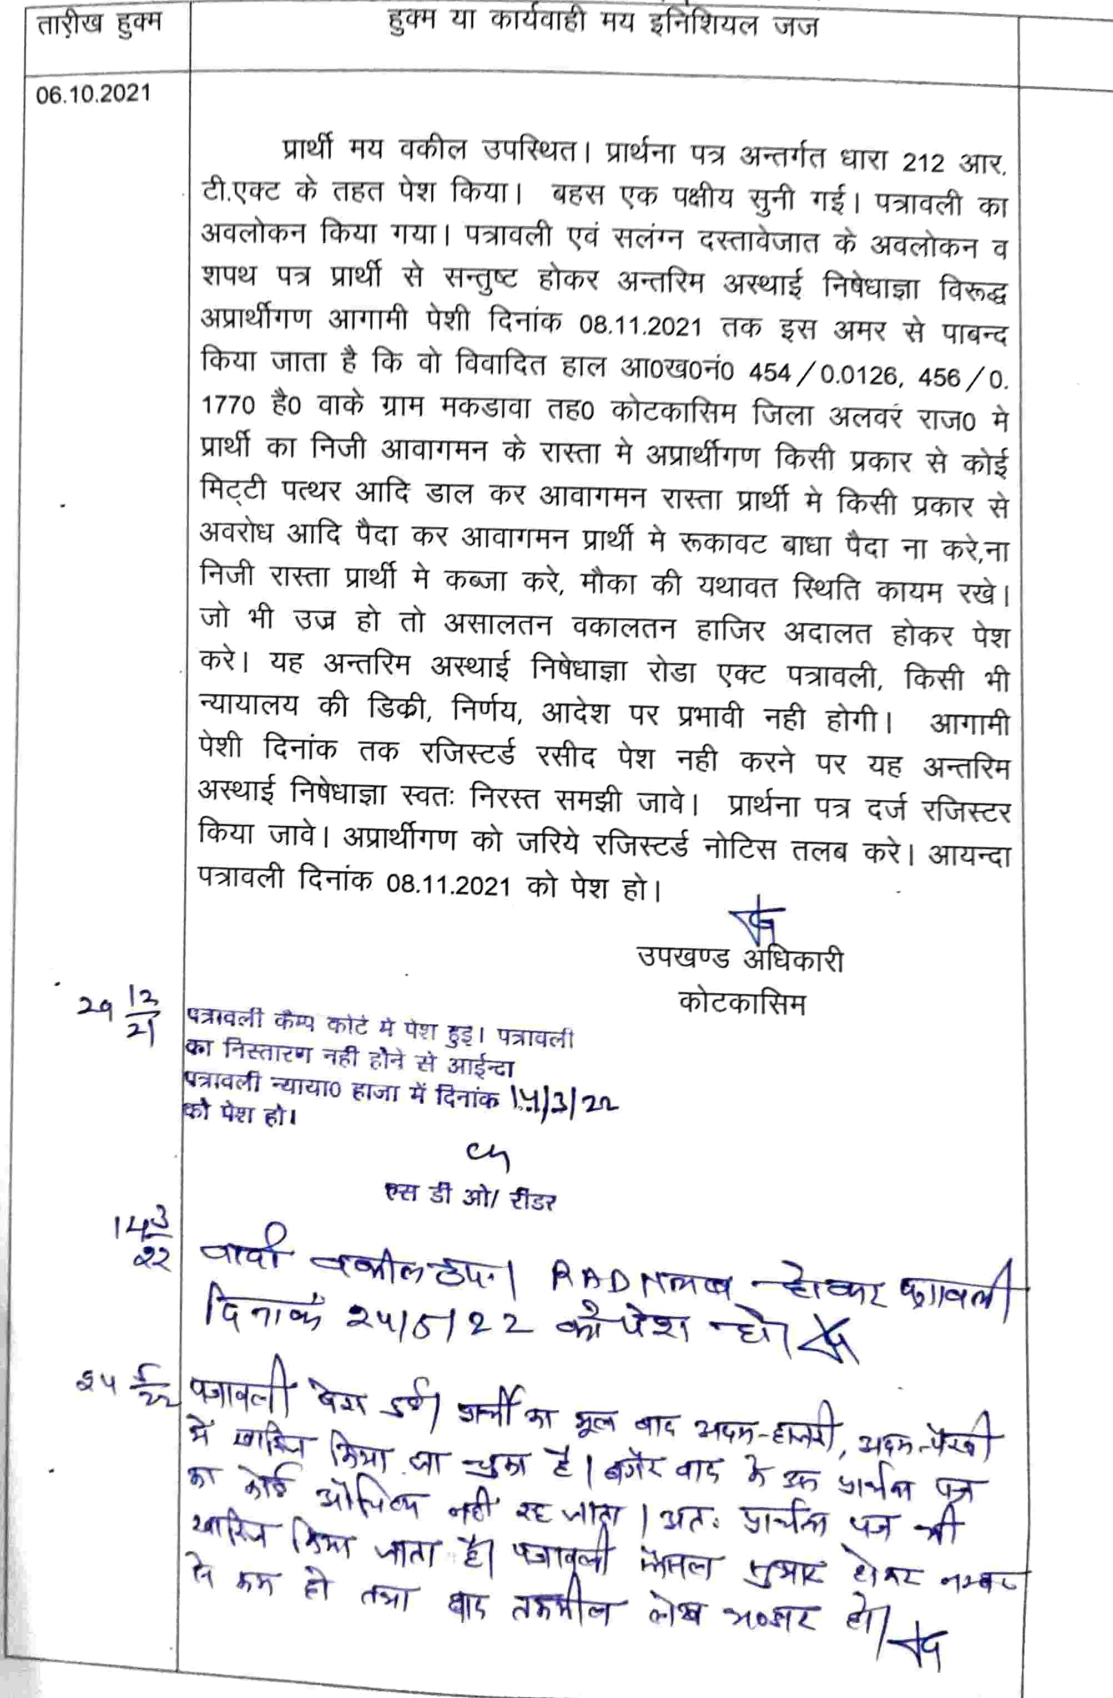 तारीख हुक्म
हुक्म या कार्यवाही मय इनिशियल जज
06.10.2021
प्रार्थी मय वकील उपस्थित। प्रार्थना पत्र अन्तर्गत धारा 212 आर.
टी.एक्ट के तहत पेश किया। बहस एक पक्षीय सुनी गई। पत्रावली का
अवलोकन किया गया। पत्रावली एवं सलंग्न दस्तावेजात के अवलोकन व
शपथ पत्र प्रार्थी से सन्तुष्ट होकर अन्तरिम अस्थाई निषेधाज्ञा विरूद्ध
अप्रार्थीगण आगामी पेशी दिनांक 08.11.2021 तक इस अमर से पाबन्द
किया जाता है कि वो विवादित हाल आ0ख0नं0 454/0.0126, 456/0.
1770 है0 वाके ग्राम मकडावा तह0 कोटकासिम जिला अलवर राज0 मे
प्रार्थी का निजी आवागमन के रास्ता मे अप्रार्थीगण किसी प्रकार से कोई
मिट्टी पत्थर आदि डाल कर आवागमन रास्ता प्रार्थी मे किसी प्रकार से
अवरोध आदि पैदा कर आवागमन प्रार्थी मे रूकावट बाधा पैदा ना करे,ना
निजी रास्ता प्रार्थी मे कब्जा करे, मौका की यथावत स्थिति कायम रखे।
जो भी उज्र हो तो असालतन वकालतन हाजिर अदालत होकर पेश
करे। यह अन्तरिम अस्थाई निषेधाज्ञा रोडा एक्ट पत्रावली, किसी भी
न्यायालय की डिक्री, निर्णय, आदेश पर प्रभावी नही होगी। आगामी
पेशी दिनांक तक रजिस्टर्ड रसीद पेश नही करने पर यह अन्तरिम
अस्थाई निषेधाज्ञा स्वतः निरस्त समझी जावे। प्रार्थना पत्र दर्ज रजिस्टर
किया जावे। अप्रार्थीगण को जरिये रजिस्टर्ड नोटिस तलब करे। आयन्दा
पत्रावली दिनांक 08.11.2021 को पेश हो।
उपखण्ड अधिकारी
कोटकासिम
29 12/21
पत्रावली कैम्प कोर्ट मे पेश हुई। पत्रावली
का निस्तारण नही होने से आईन्दा
पत्रावली न्याया0 हाजा में दिनांक 14/3/22
को पेश हो।
एस डी ओ/ रीडर
14 3/22
वादी वकील उप.। RAD तलब होकर पत्रावली
दिनांक 24/5/22 को पेश हो।
24 5/22
पत्रावली पेश हुई। प्रार्थी का मूल वाद अदम-हाजरी, अदम-पैरवी
में खारिज किया जा चुका है। बगैर वाद के उक्त प्रार्थना पत्र
का कोई औचित्य नहीं रह जाता। अतः प्रार्थना पत्र भी
खारिज किया जाता है। पत्रावली फैसल शुमार होकर नम्बर
से कम हो तथा बाद तकमील लेख भण्डार हो।